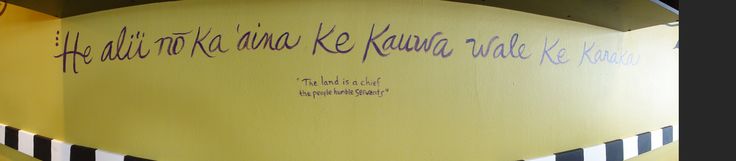 He ali'i nō ka 'aina ke kauwa wale ke kanaka
"The land is a chief
the people humble servants"